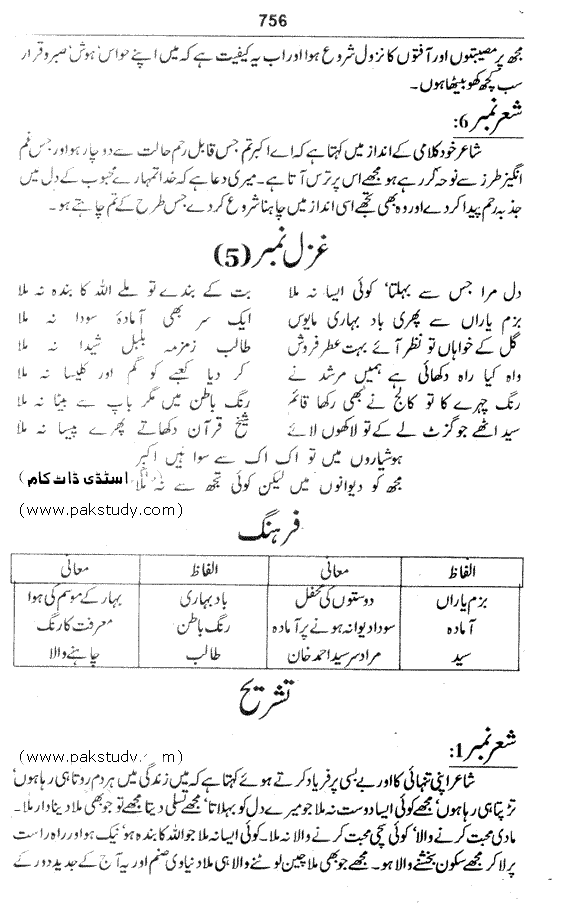 756
مجھ پر مصیبتوں اور آفتوں کا نزول شروع ہوا اور اب یہ کیفیت ہے کہ میں اپنے حواس' ہوش' صبر و قرار
سب کچھ کھو بیٹھا ہوں۔
شعر نمبر 6:
شاعر خود کلامی کے انداز میں کہتا ہے کہ اے اکبر تم جس قابل رحم حالت سے دو چار ہو اور جس غم
انگیز طرز سے نوحہ کر رہے ہو مجھے اس پر ترس آتا ہے۔ میری دعا ہے کہ خدا تمہارے محبوب کے دل میں
جذبہ رحم پیدا کر دے اور وہ بھی تجھے اسی انداز میں چاہنا شروع کر دے جس طرح کے تم چاہتے ہو۔
غزل نمبر (5)
دل مرا جس سے بہلتا' کوئی ایسا نہ ملا بت کے بندے تو ملے اللہ کا بندہ نہ ملا
بزم یاراں سے پھری باد بہاری مایوس ایک سر بھی آمادۂ سودا نہ ملا
گل کے خواہاں تو نظر آئے بہت عطر فروش طالب زمزمہ بلبل شیدا نہ ملا
واہ کیا راہ دکھائی ہے ہمیں مرشد نے کر دیا کعبے کو گم اور کلیسا نہ ملا
رنگ چہرے کا تو کالج نے بھی رکھا قائم رنگ باطن میں مگر باپ سے بیٹا نہ ملا
سید اٹھے جو گزٹ لے کے تو لاکھوں لائے شیخ قرآن دکھاتے پھرے پیسا نہ ملا
ہوشیاروں میں تو اک اک سے سوا ہیں اکبر
مجھ کو دیوانوں میں لیکن کوئی تجھ سے نہ ملا
( اسٹڈی ڈاٹ کام
(www.pakstudy.com)
فرہنگ
الفاظ معانی الفاظ معانی
بزم یاراں دوستوں کی محفل باد بہاری بہار کے موسم کی ہوا
آمادہ سودا دیوانہ ہونے پر آمادہ رنگ باطن معرفت کا رنگ
سید مراد سر سید احمد خان طالب چاہنے والا
تشریح
شعر نمبر 1:
(www.pakstudy.com)
شاعر اپنی تنہائی کا اور بے بسی پر فریاد کرتے ہوئے کہتا ہے کہ میں زندگی میں ہر دم روتا ہی رہا ہوں'
تڑپتا ہی رہا ہوں' مجھے کوئی ایسا دوست نہ ملا جو میرے دل کو بہلاتا' مجھے تسلی دیتا مجھے تو جو بھی ملا دینا دار ملا۔
مادی محبت کرنے والا' کوئی سچی محبت کرنے والا نہ ملا۔ کوئی ایسا نہ ملا جو اللہ کا بندہ ہو' نیک ہو اور راہ راست
پر لا کر مجھے سکون بخشنے والا ہو۔ مجھے جو بھی ملا چین لوٹنے والا ہی ملا دنیاوی صنم اور یہ آج کے جدید دور کے